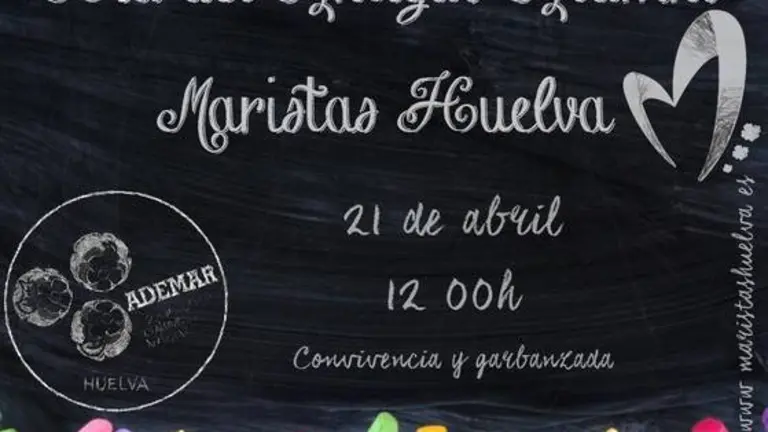 Maristas Huelva
21 de abril
12 00h
Convivencia y garbanzada
ADEMAR
HUELVA
www maristashuelva es